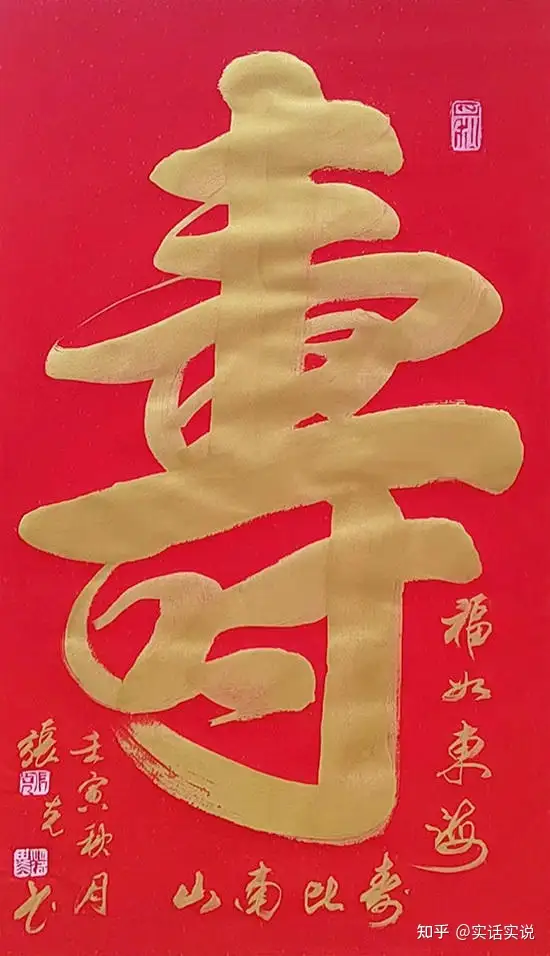 壽
福如東海
寿比南山
壬寅秋月
張克书
知乎 @实话实说